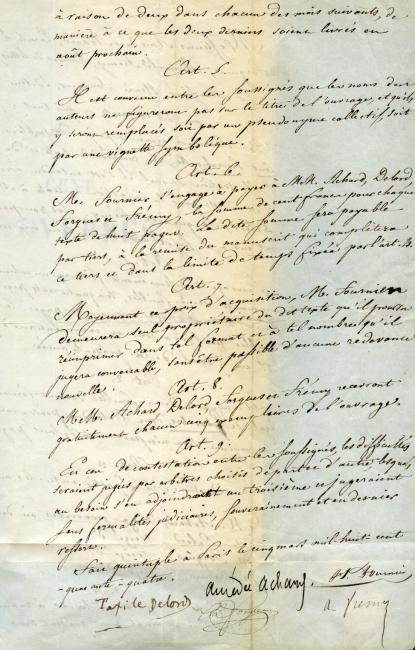 à raison de deux dans chacun des mois suivants, de
manière à ce que les deux derniers soient livrés en
août prochain.
Art. 5.
Il est convenu entre les soussignés que les noms des
auteurs ne figureront pas sur le titre de l'ouvrage, et qu'ils
y seront remplacés soit par un pseudonyme collectif, soit
par une vignette symbolique.
Art. 6.
M. Fournier s'engage à payer à MM. Achard, Delord
Sorgues et Frémy, la somme de cent francs pour chaque
texte de huit pages. La dite somme sera payable
par tiers, à la remise du manuscrit qui complètera
ce tiers et dans la limite de temps fixée par l'art. 4.
Art. 7
Moyennant ce prix d'acquisition, M. Fournier
demeurera seul propriétaire du dit texte qu'il pourra
réimprimer dans tel format et à tel nombre qu'il
jugera convenable, sans être passible d'aucune redevance
nouvelle.
Art. 8.
MM. Achard, Delord, Sorgues et Frémy recevront
gratuitement chacun cinq exemplaires de l'ouvrage.
Art. 9.
En cas de contestation entre les soussignés, les difficultés
seraient jugées par arbitres choisis de part et d'autre lesquels
au besoin s'en adjoindront un troisième et jugeraient
sans formalités judiciaires, souverainement et en dernier
ressort.
Fait quintuple à Paris le cinq mars mil huit cent
quarante-quatre.
Taxile Delord
Amédée Achard
H. Fournier
A. Fremy